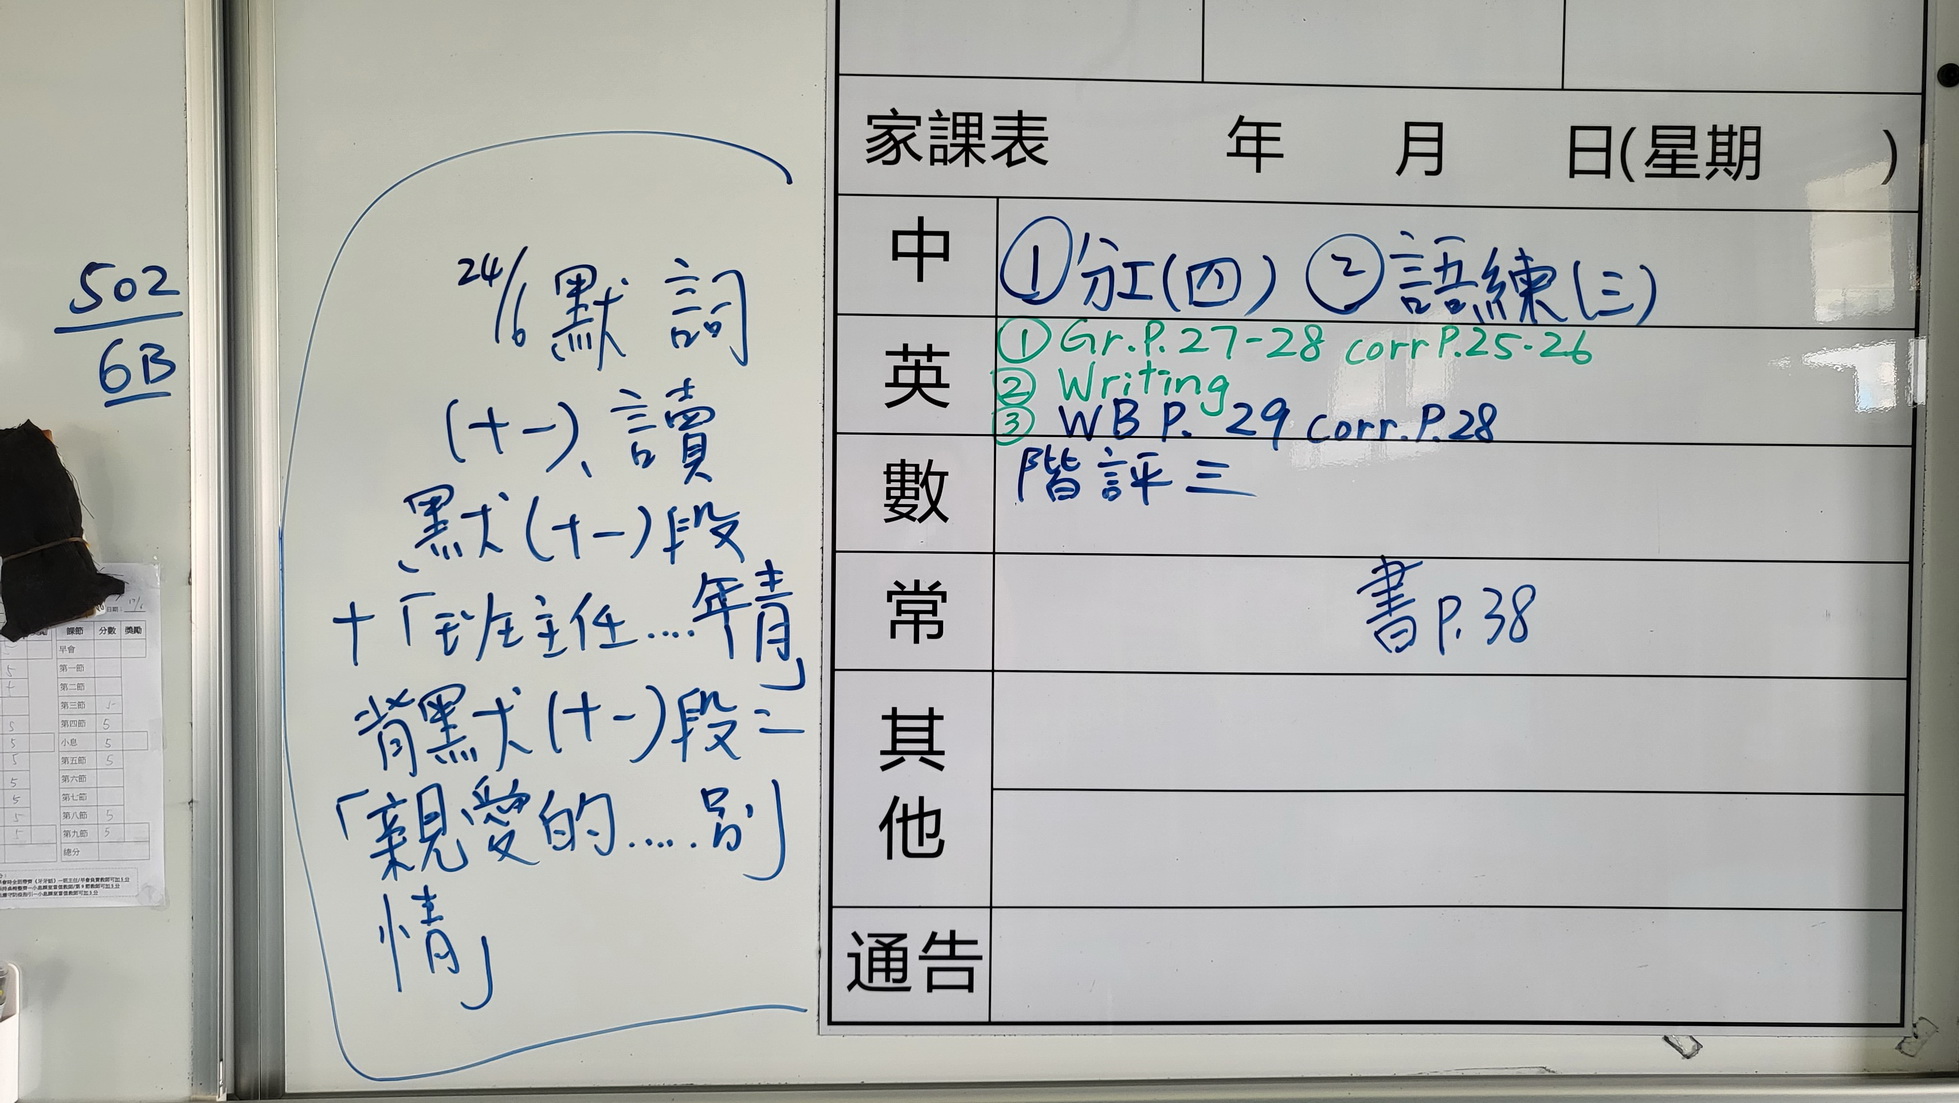 502
6B
24/6 默詞
(十一)、讀
默(十一)段
十「班主任....年情」
背默(十一)段二
「親愛的.....別
情」
家課表 年 月 日(星期 )
中
①分工(四) ②語練(三)
英
① Gr.P.27-28 corr P.25-26
② Writing
③ WB P. 29 corr.P.28
數
階評三
常
書P.38
其
他
通告
課節 分數 獎勵
早會
第一節
第二節
第三節 5
第四節 5
小息 5
第五節 5
第六節
第七節
第八節 5
第九節 5
總分